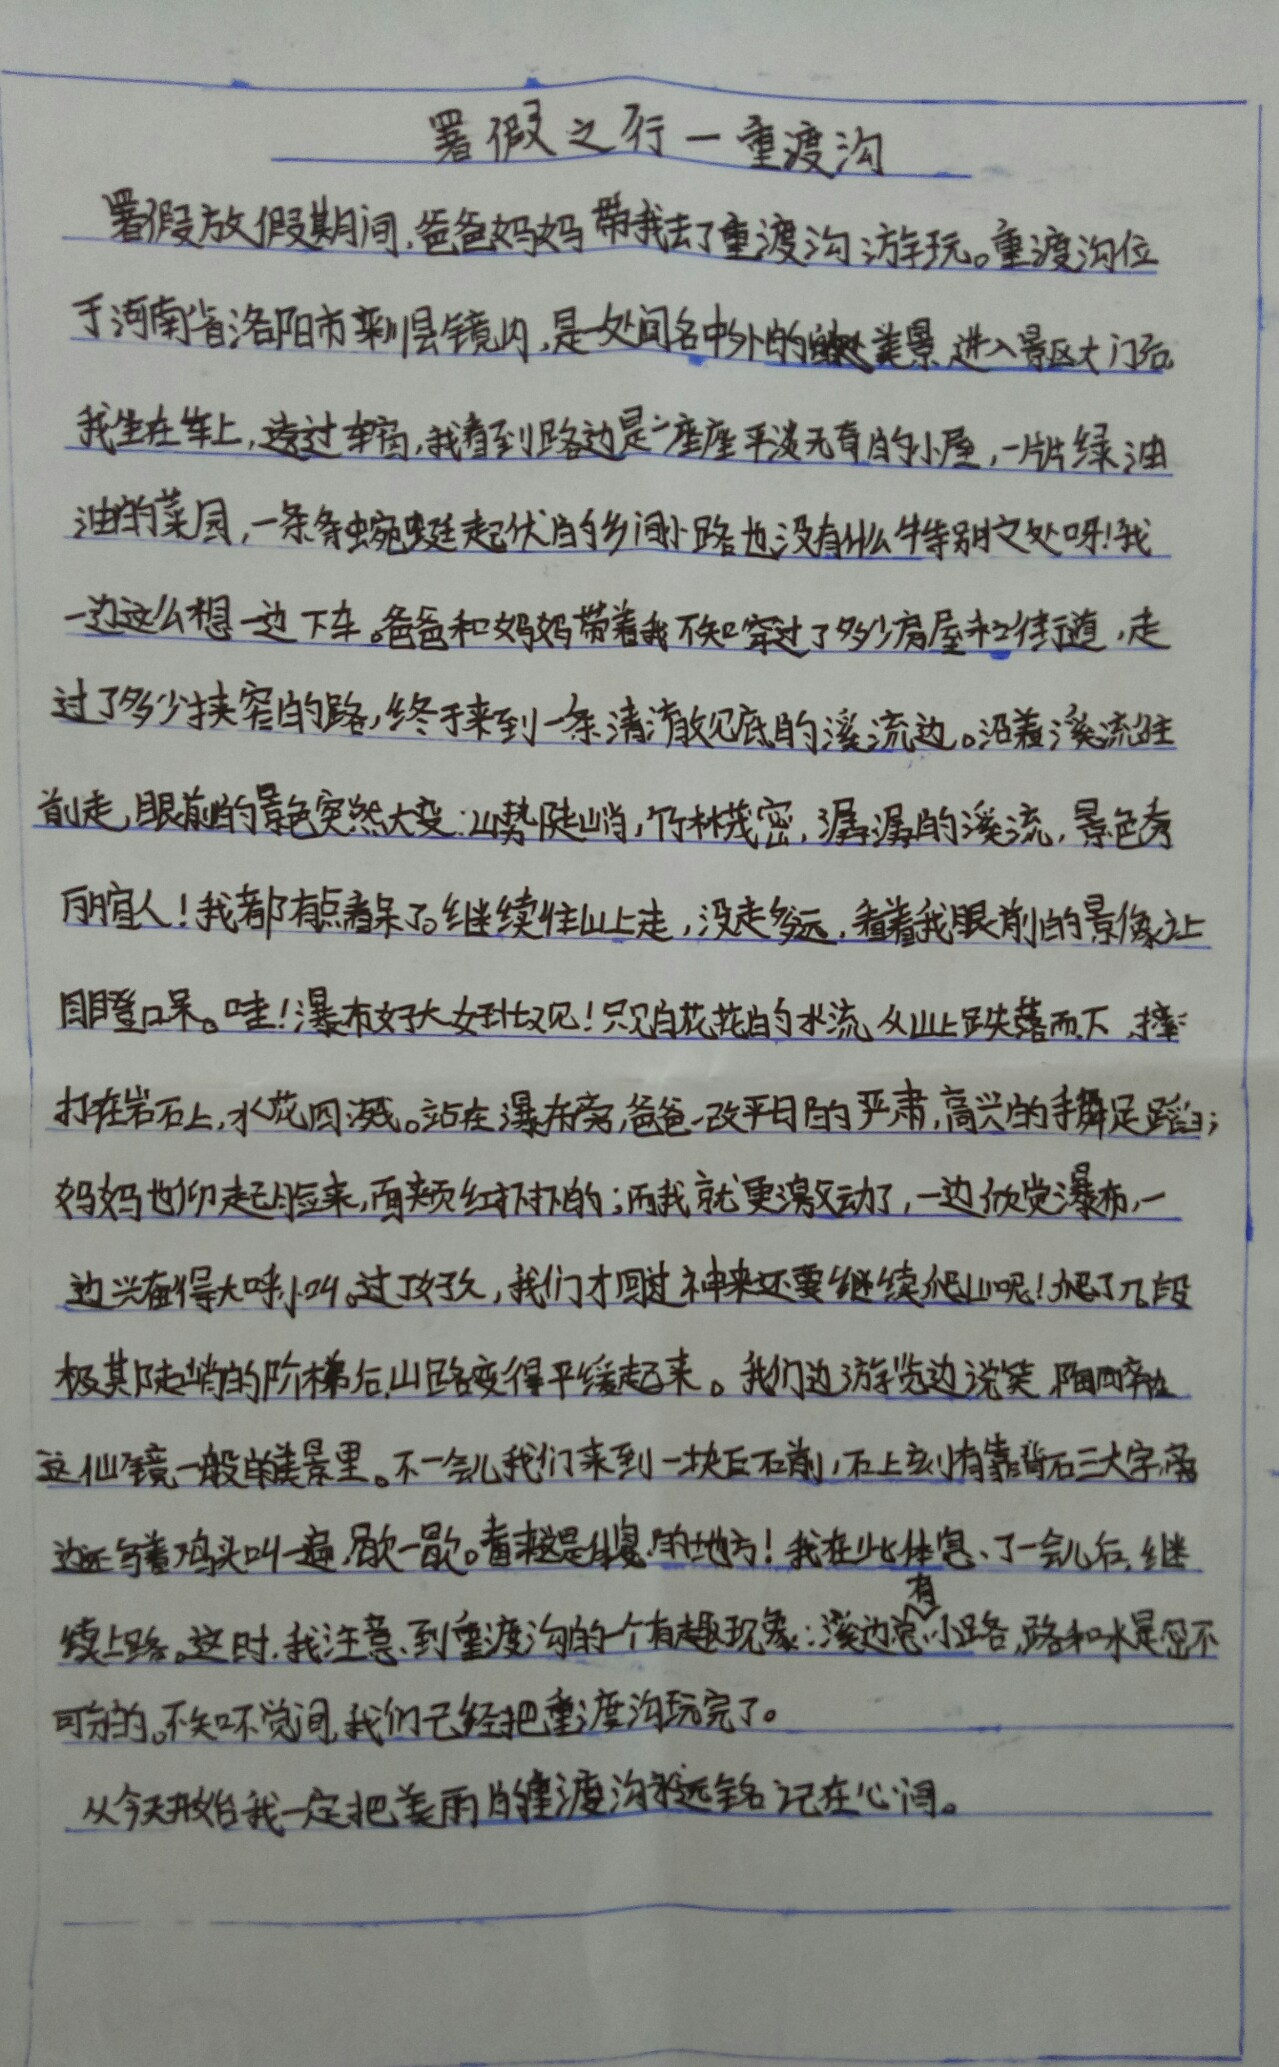 署假之行一重渡沟
署假放假期间,爸爸妈妈带我去了重渡沟游玩。重渡沟位
于河南省洛阳市栾川县镜内,是一处闻名中外的美景,进入景区大门后,
我坐在车上,透过车窗,我看到路边是一座座平淡无奇的小屋,一片片绿油
油的菜园,一条条蜿蜒起伏的乡间小路也没有什么特别之处呀!我
一边这么想一边下车。爸爸和妈妈带着我不知穿过了多少房屋和街道,走
过了多少狭窄的路,终于来到一条清澈见底的溪流边。沿着溪流往
前走,眼前的景色突然大变:山势陡峭,竹林茂密,潺潺的溪流,景色秀
丽宜人!我都有点看呆了。继续往山上走,没走多远,看着我眼前的景像让
目瞪口呆。哇!瀑布好大好壮观!只见白花花的水流从山上跌落而下,撞
打在岩石上,水花四溅。站在瀑布旁,爸爸一改平日的严肃,高兴的手舞足蹈;
妈妈也仰起脸来,面颊红扑扑的;而我就更激动了,一边欣赏瀑布,一
边兴奋得大呼小叫。过了好久,我们才回过神来还要继续爬山呢!爬了几段
极其陡峭的阶梯后,山路变得平缓起来。我们边游览边说笑,陶醉在
这仙镜一般的美景里。不一会儿我们来到一块巨石前,石上刻有靠背石三大字,旁
边还写着鸡头叫一遍,歇一歇。看来这是休息的地方!我在此休息了一会儿后,继
续上路。这时,我注意到重渡沟的一个有趣现象:溪边总有小路,路和水是密不
可分的。不知不觉间,我们已经把重渡沟玩完了。
从今天开始我一定把美丽的重渡沟永远铭记在心间。